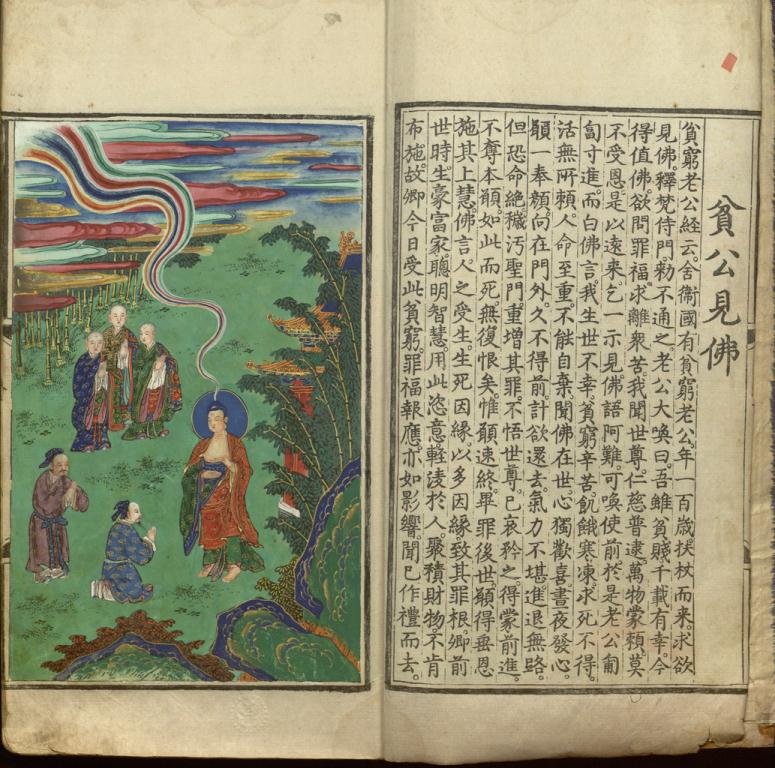 貧公見佛
貧窮老公経云。舍衛國有貧窮老公。年一百歳。扶杖而来。求欲
見佛。釋梵侍門。勑不通之。老公大喚曰。吾雖貧賤。千載有幸。今
得值佛。欲問罪福。求離衆苦。我聞世尊。仁慈普逮。萬物蒙頼。莫
不受恩。是以遠来。乞一示見。佛語阿難。可喚使前。於是老公匍
匐寸進。而白佛言。我生世不幸。貧窮辛苦。飢餓寒凍。求死不得。
活無所頼。人命至重。不能自棄。聞佛在世。心獨歡喜。晝夜發心。
願一奉顔。向在門外。久不得前。計欲還去。氣力不堪。進退無路。
但恐命絶。穢汚聖門。重增其罪。不悟世尊。已哀矜之。得蒙前進。
不奪本願。如此而死。無復恨矣。惟願速終。畢罪後世。願得垂恩。
施其上慧。佛言。人之受生。生死因緣。以多因緣。致其罪根。卿前
世時。生豪富家。聰明智慧。用此恣意。輕淩於人。聚積財物。不肯
布施。故卿今日受此貧窮。罪福報應。亦如影響。聞已作禮而去。